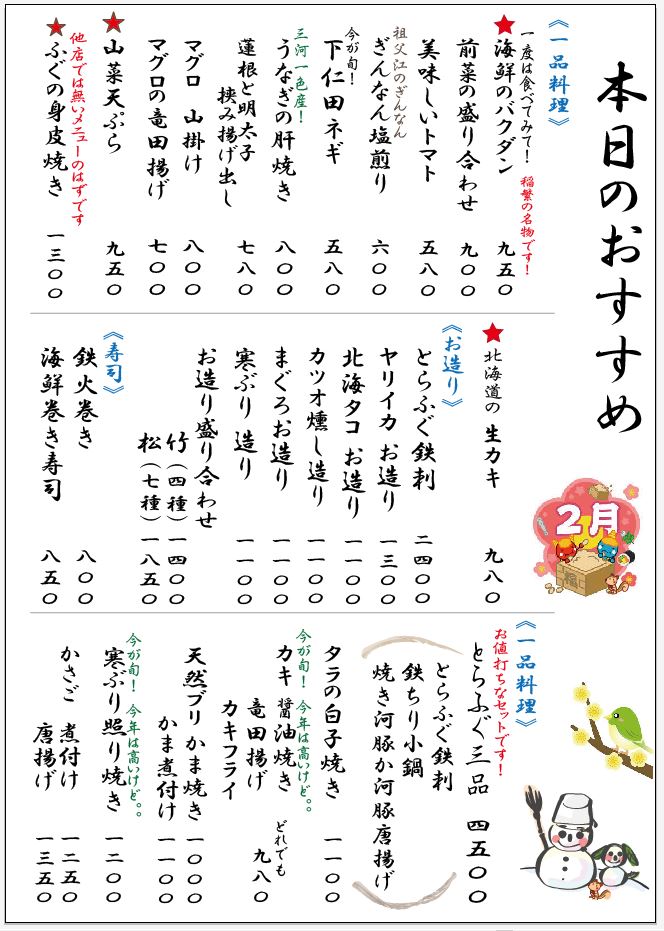 本日のおすすめ
《一品料理》
一度は食べてみて！ 稲繁の名物です！
★海鮮のバクダン 九五〇
前菜の盛り合わせ 九〇〇
美味しいトマト 五八〇
祖父江のぎんなん
ぎんなん塩煎り 六〇〇
今が旬！
下仁田ネギ 五八〇
三河一色産！
うなぎの肝焼き 八〇〇
蓮根と明太子
挟み揚げ出し 七八〇
マグロ 山掛け 八〇〇
マグロの竜田揚げ 七〇〇
★山菜天ぷら 九五〇
他店では無いメニューのはずです
★ふぐの身皮焼き 一三〇〇
★北海道の 生カキ 九八〇
《お造り》
とらふぐ鉄刺 二四〇〇
ヤリイカ お造り 一三〇〇
北海タコ お造り 一一〇〇
カツオ燻し造り 一一〇〇
まぐろお造り 一一〇〇
寒ぶり 造り 一一〇〇
お造り盛り合わせ
竹（四種）一四〇〇
松（七種）一八五〇
《寿司》
鉄火巻き 八〇〇
海鮮巻き寿司 八五〇
2月
福
《一品料理》
お値打ちなセットです！
とらふぐ三品 四五〇〇
とらふぐ鉄刺
鉄ちり小鍋
焼き河豚か河豚唐揚げ
タラの白子焼き 一一〇〇
今が旬！ 今年は高いけど。。
カキ 醤油焼き
竜田揚げ
カキフライ
どれでも 九八〇
天然ブリ かま焼き 一〇〇〇
かま煮付け 一一〇〇
今が旬！ 今年は高いけど。。
寒ぶり照り焼き 一二〇〇
かさご 煮付け 一二五〇
唐揚げ 一三五〇